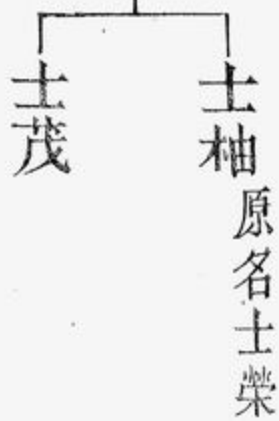 士柚
原名士榮
士茂